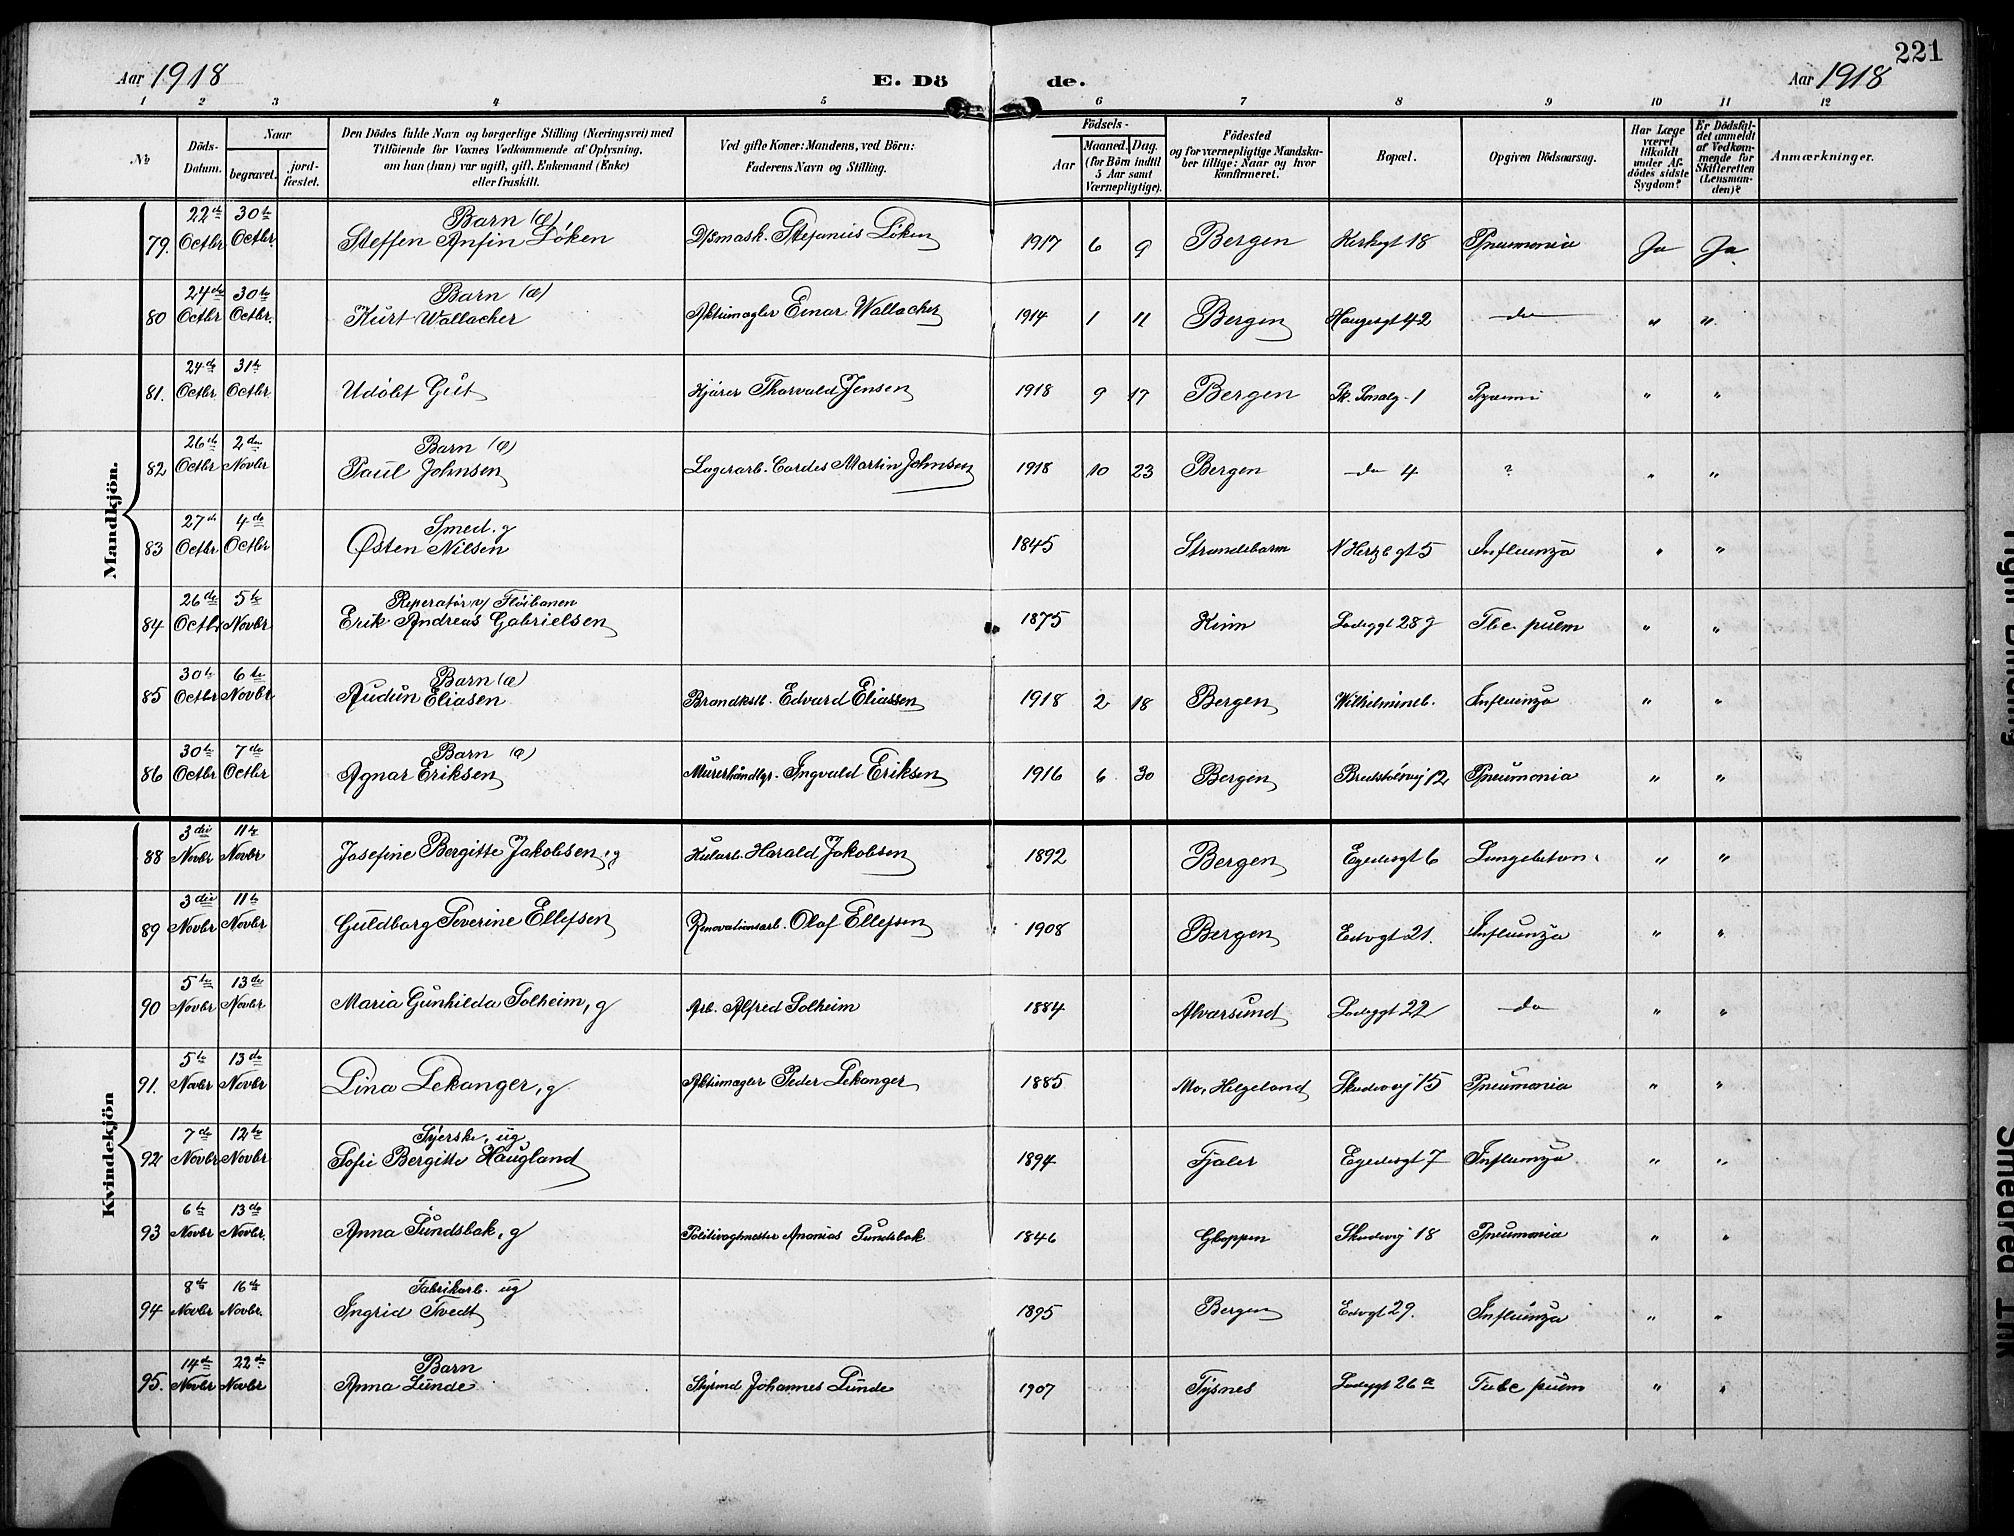 221
Aar 1918 E. Dö de. Aar 1918
1 2 3 4 5 6 7 8 9 10 11 12
No Döds-Datum. Naar begravet. jordfæstet. Den Dödes fulde Navn og borgerlige Stilling (Næringsvei) med Tilföiende for Voxnes Vedkommende af Oplysning, om han (hun) var ugift, gift, Enkemand (Enke) eller fraskilt. Ved gifte Koner: Mandens, ved Börn: Faderens Navn og Stilling. Födsels- Aar Maaned. Dag. (for Börn indtil 5 Aar samt Værnepligtige). Födested og for værnepligtige Mandskaber tillige: Naar og hvor konfirmeret. Bopæl. Opgiven Dödsaarsag. Har Læge været tilkaldt under Afdödes sidste Sygdom? Er Dödsfaldet anmeldt af Vedkommende for Skifteretten (Lensmanden)? Anmærkninger.
Mandkjön.
79. 22de Octbr 30te Octbr. Barn (æ) Steffen Anfin Løken Stefanus Løken 1917 6 9 Bergen Kirkegt 18 Pneumonia Ja Ja.
80 24de Octbr 30te Octbr. Barn (æ) Kurt Wallacher Aktiemægler Einar Wallacher 1914 1 11 Bergen Haugesgt 42 do " "
81. 24de Octbr 31te Octbr. Udöbt Gut Kjører Thorvald Jensen 1918 9 17 Bergen 1 " "
82 26de Octbr 2den Novbr Barn (æ) Paul Johnsen Lagerarb. Cordes Martin Johnsen 1918 10 23 Bergen do 4 ? " "
83 27de Octbr 4de Octbr Smed. g Østen Nilsen 1845 Strandebarm N Hertzb gt 5 Influenza " "
84 26de Octbr 5te Novbr Reperatør v/ Fløibanen Erik Andreas Gabrielsen 1875 Kinn Ladeggt 28 Tbc. pulm " "
85 30te Octbr 6te Novbr Barn (æ) Audun Eliasen Brandkstb. Edvard Eliassen 1918 2 18 Bergen Wilhelmineb. Influenza " "
86 30te Octbr 7de Octbr Barn (æ) Agnar Eriksen Murerhåndlgr. Ingvald Eriksen 1916 6 30 Bergen 12 Pneumonia " "
Kvindekjön
88 3die Novbr 11te Novbr Josefine Bergitte Jakobsen, g Kularb. Harald Jakobsen 1892 Bergen Egedesgt 6 Lungebetæn. " "
89 3die Novbr 11te Novbr Guldborg Severine Ellefsen Renovationsarb. Olaf Ellefsen 1908 Bergen Edvgt 21. Influenza " "
90 5te Novbr 13de Novbr Maria Gunhilda Solheim, g Arb. Alfred Solheim 1884 Alversund Ladeggt 22 do " "
91. 5te Novbr 13de Novbr Lina Lekanger, g Aktiemægler Peder Lekanger 1885 Mo, Helgeland Skudevej 15 Pneumonia " "
92 7de Novbr 12te Novbr Syerske, ug Sofie Bergitte Haugland 1894 Fjaler Egedesgt 7 Influenza " "
93 6te Novbr 13de Novbr. Anna Sundsbak, g Ananias Sundsbak 1846 Gloppen Skudevej 18 Pneumonia " "
94 8de Novbr 16de Novbr. Fabrikarb. ug Ingrid Tvedt 1895 Bergen Edvgt 29. Influenza " "
95. 14de Novbr 22de Novbr Barn Anna Lunde Styrmd Johannes Lunde 1907 Tysnes Ladeggt 26 a Tubc pulm " "
Tight Binding
Smeared Ink